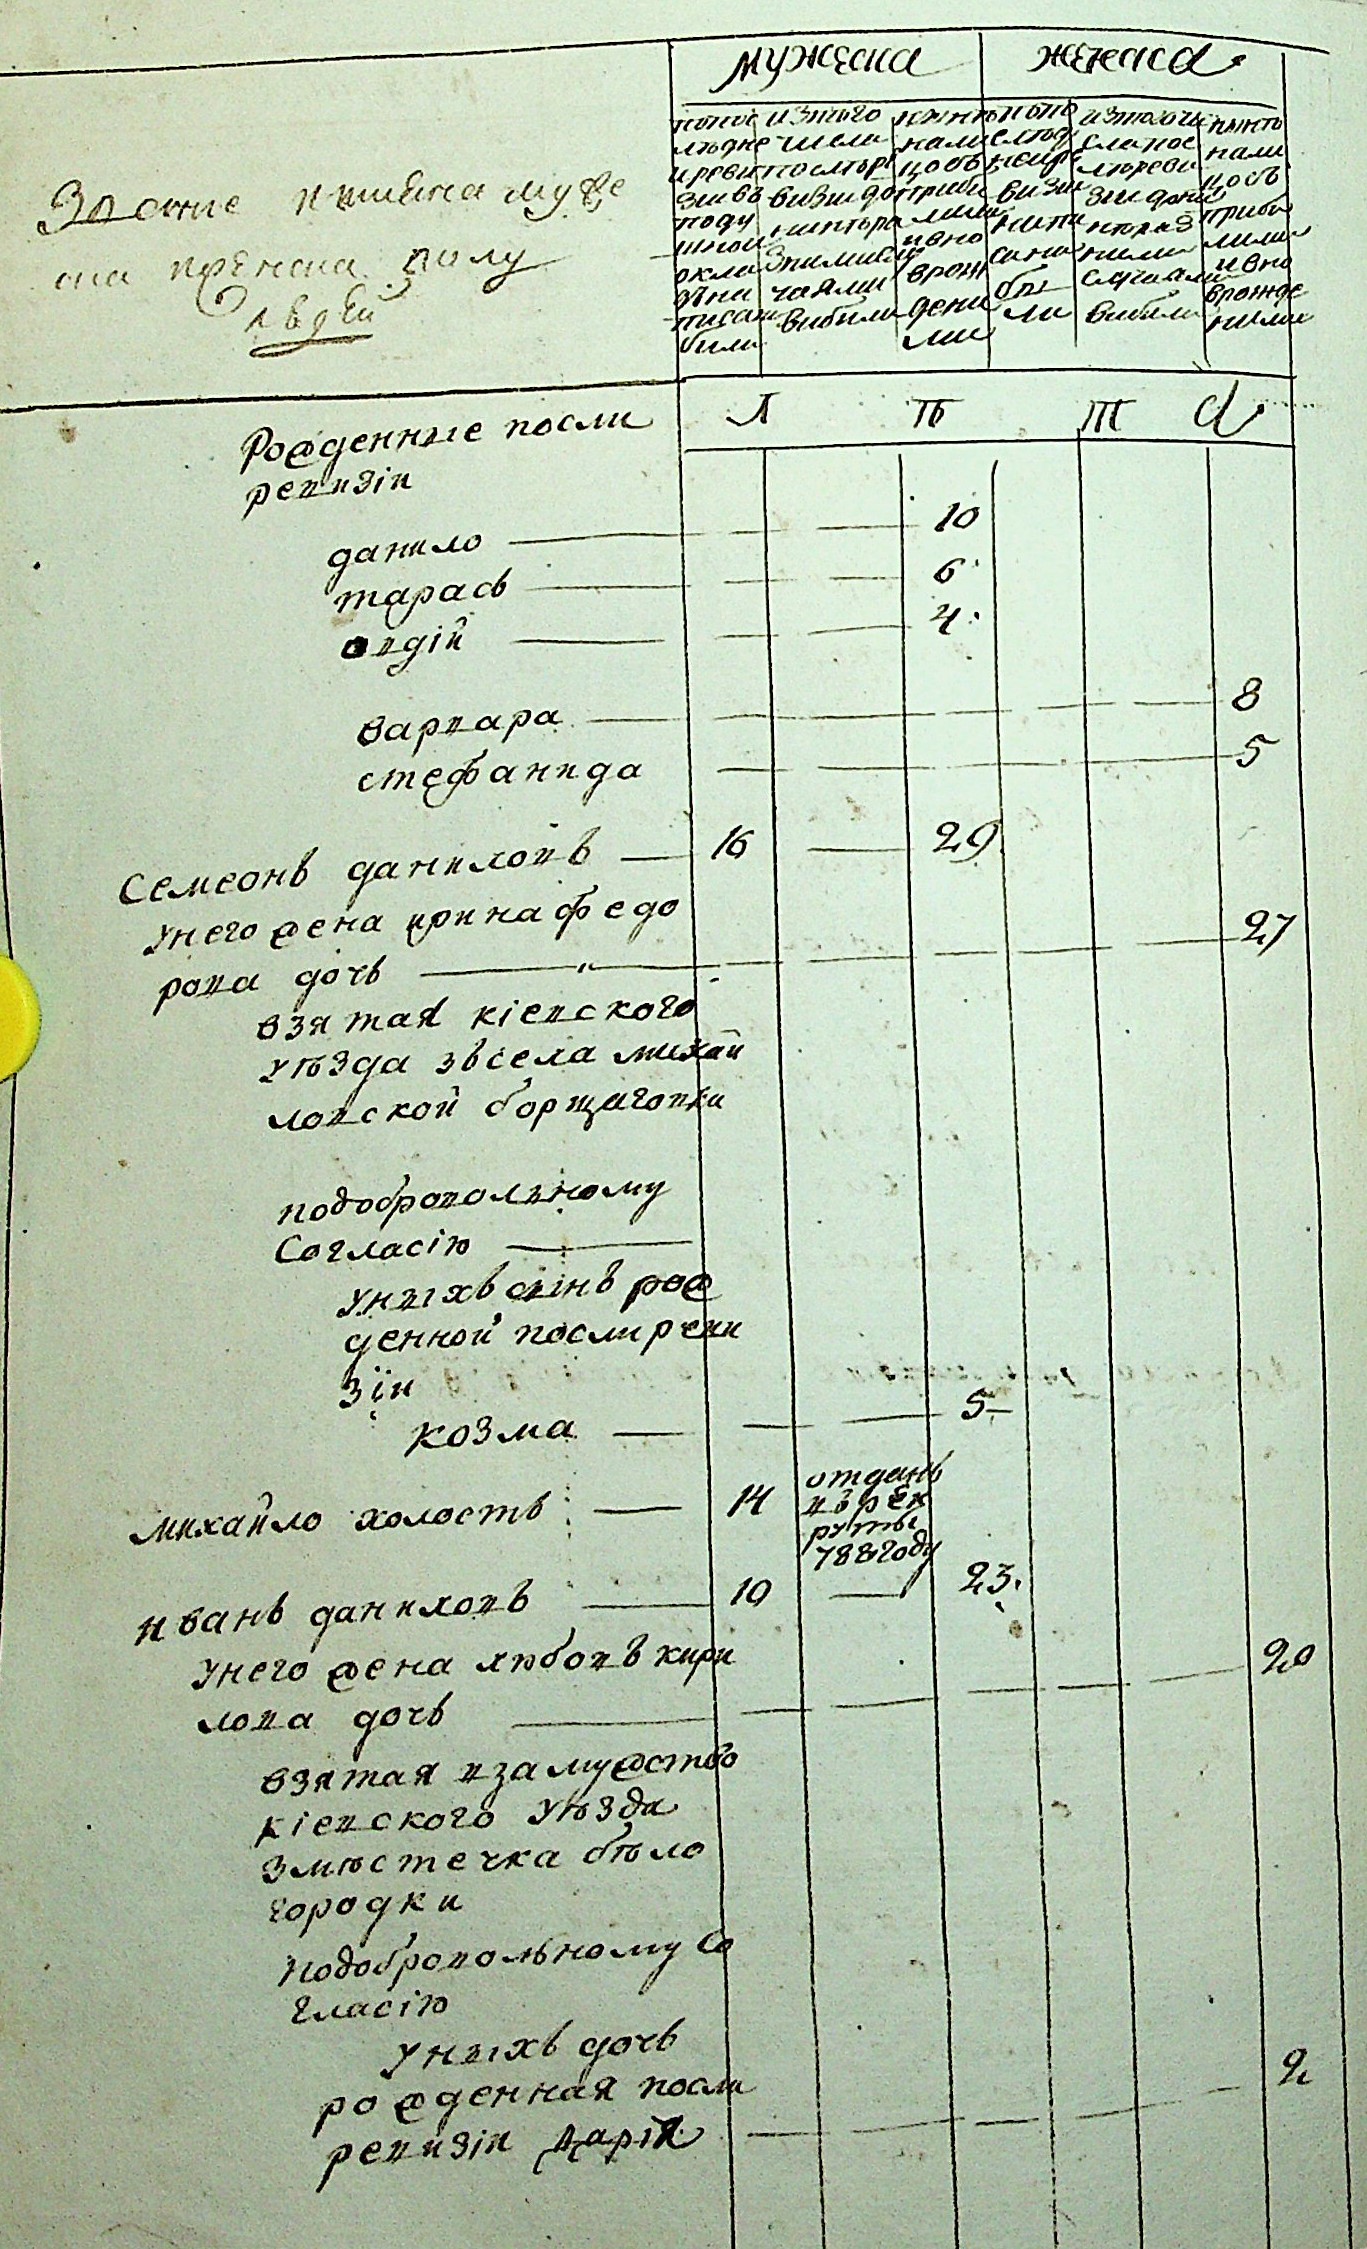 мужеска женска
Звание имяна муже
ска и женска полу
людей
по пос лѣдне и ревизии въ подушной окладъ писаны были
из того числа послѣ ревизии до ннешней разними случаями выбыли
нынѣ на лицо съ прибилими и вно врожденими
по последней ревизии написани были
из того числа после ревизии до ннешней разними случаями вибили
нынѣ на лицо съ прибилими и вно врожденими
Л Л Л Л
Рожденные посли
ревизіи
данило 10
тарасъ 6
авдій 4
варвара 8
стефанида 5
Семеонъ даниловъ 16 29
унего жена ирина федо
рова дочь 27
взятая кіевского
уѣзда зъ села михай
ловской борщаговки
подобровольному
Согласію
унихъ синъ рож
денной посли реви
зіи
козма 5
михайло холостъ 14 отданъ
въ рек
руты
788 году
иванъ даниловъ 10 23
унего жена любовъ кири
лова дочь 20
взятая взамужство
кіевского уѣзда
змѣстечка бѣло
городки
подобровольному Со
гласію
унихъ дочь
рожденная посли
ревизіи дарія 2